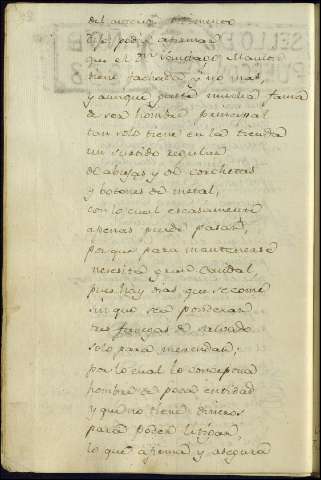 del
que el Dn
tiene fachada y no mas,
y aunque mucha fama
de ser hombre principal
tan solo tiene en la tienda
un surtido regular
de abujas y de corchetes
y botones de metal,
con lo cual escasamente
apenas puede pasar,
porque para mantenerse
necesita gran caudal,
pues hay dias que se come
sin que sea ponderar
tres fanegas de salvado
solo para merendar,
por lo cual lo
hombre de poca entidad
y que no tiene dineros
para poder litigar,
lo que afirma y asegura
SELLO DE